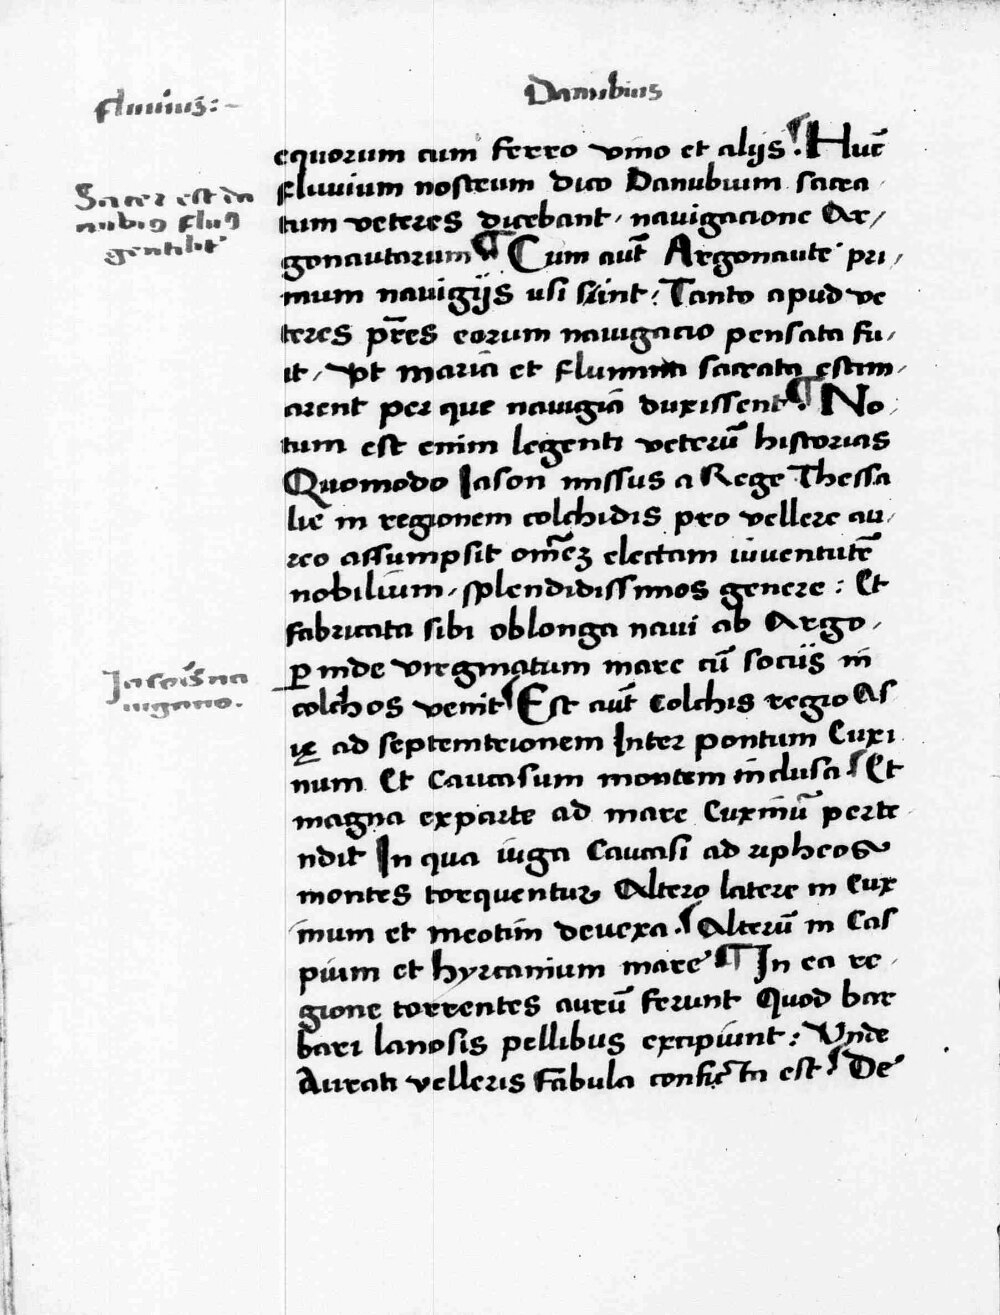 Danubius
fluuiuʒ:~
equorum cum ferro vino et alijs. ¶ Huc̄
fluvium nostrum dico Danubium sacra
tum veteres dicebant, navigacione Ar/
gonautarum ¶ Cum aut̄ Argonaute pri/
mum navigijs usi sunt: Tanto apud ve
teres p̄res eorum navigacio pensata fu/
it, Vt maria et flumina sacrata estim/
arent per que navigiā duxissent. ¶ No/
tum est enim legenti veterū historias
Quomodo Iason missus a Rege Thessa
lie in regionem colchidis pro vellere au/
reo assumpsit om̄eʒ electam iuventutē
nobilium, splendidissimos genere: Et
fabricata sibi oblonga navi ab Argo,
ꝑ inde vregmatum mare cū sociis in
colchos venit. ¶ Est aut̄ Colchis regio As
ię ad septemtrionem Inter pontum Euxi
num Et Caucasum montem inclusa. ¶ Et
magna ex parte ad mare Euxinū perte
ndit In qua iuga Caucasi ad ripheos
montes torquentur Altero latere in Eux
inum et meotim devexa. ¶ Alterū in Cas
pium et hyrcanium mare ¶ In ea re/
gione torrentes aurū ferunt Quod bar
bari lanosis pellibus excipiunt: Vnde
Aurati velleris fabula conficta est. ¶ De
Sacer est da
nubiꝰ fluꝰ
gentilib'
Iasoīs na
uigatio.